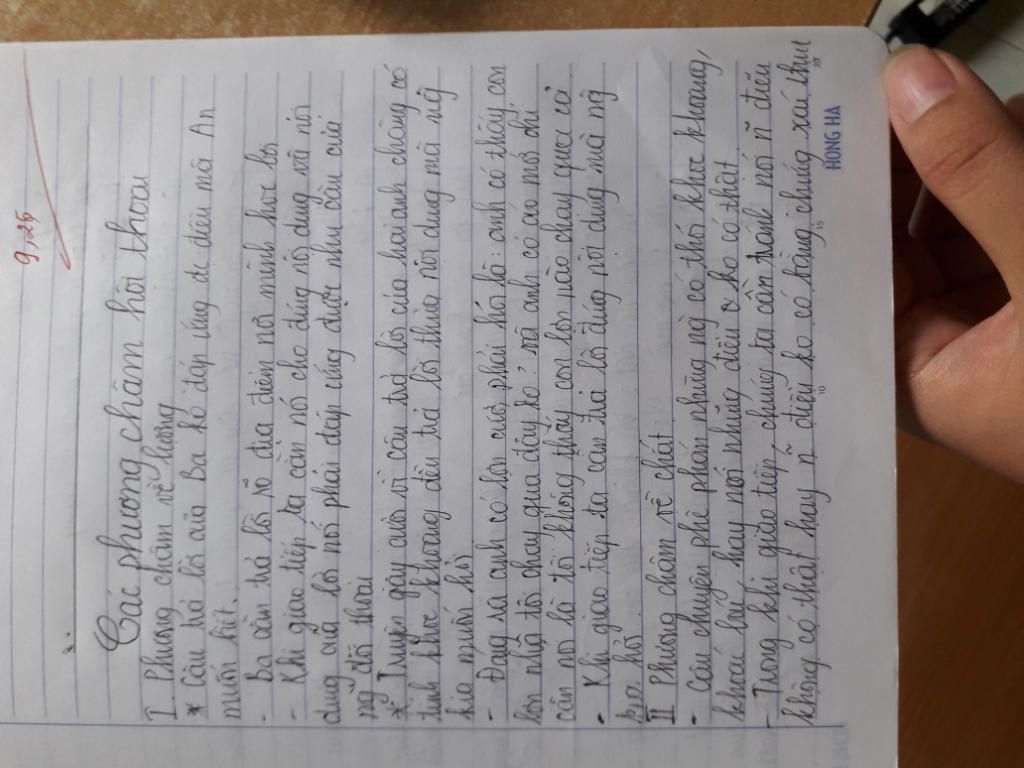 9,25
Các phương châm hội thoại
I. Phương châm về lượng
* Câu trả lời của Ba ko đáp ứng đc điều mà An
muốn biết.
- Ba cần trả lời rõ địa điểm nơi mình học bơi
- Khi giao tiếp ta cần nói cho đúng nội dung và nói
dung của lời nói phải đáp ứng được nhu cầu của
ng đối thoại
* Truyện gây cười vì câu trả lời của hai anh chàng có
tính khoe khoang đều trả lời thừa nội dung mà ng
kia muốn hỏi
- Đáng ra anh có lợn cưới phải hỏi là: anh có thấy con
lợn nhà tôi chạy qua đây ko? và anh có áo mới chỉ
cần nói là tôi không thấy con lợn nào chạy qua cả
- Khi giao tiếp ta cần trả lời đúng nội dung mà ng
kia hỏi
II Phương châm về chất
- Câu chuyện phê phán những ng có thói khoe khoang,
khoác lác hay nói những điều ko có thật
- Trong khi giao tiếp, chúng ta cần tránh nói n~ điều
không có thật hay n~ điều ko có bằng chứng xác thực
10
15
20
HONG HA